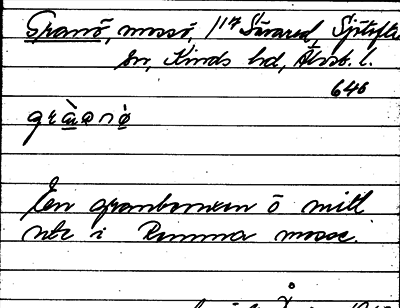 Granö, mossö, 1/17 Sivared, Sjötofta
sn, Kinds hd, Älvsb. l.
646
En granbevuxen ö mitt
ute i Rumma mosse.